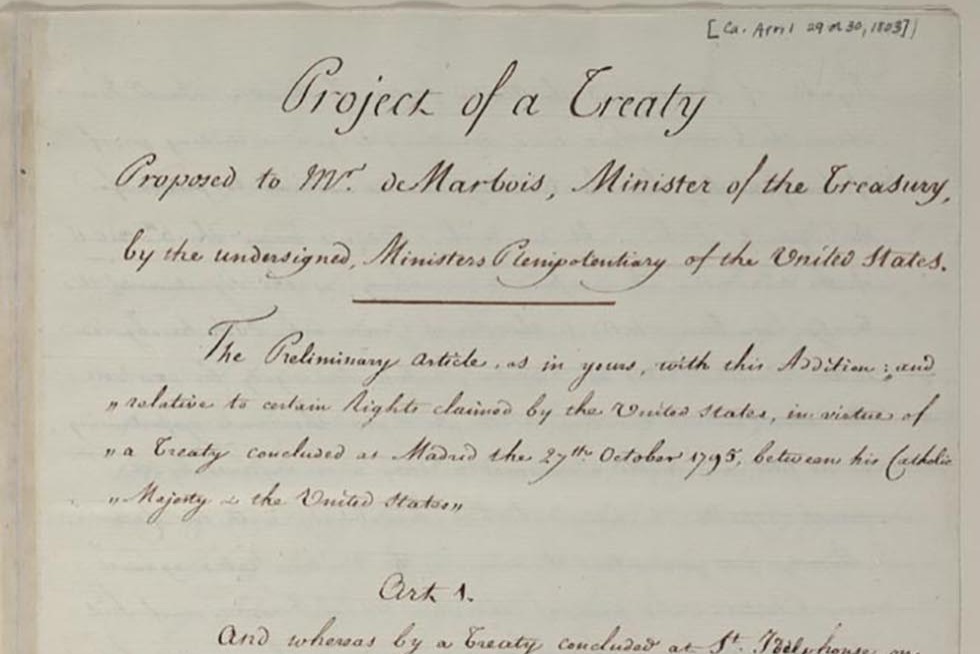 [Ca. April 29 or 30, 1803]
Project of a Treaty
Proposed to Mr. de Marbois, Minister of the Treasury,
by the undersigned, Ministers Plenipotentiary of the United States.
The Preliminary article, as in yours, with this Addition; and
„ relative to certain Rights claimed by the United States, in virtue of
„ a Treaty concluded at Madrid the 27th. October 1795, between his Catholic
„ Majesty & the United States„
Art. 1.
And whereas by a Treaty concluded at St.